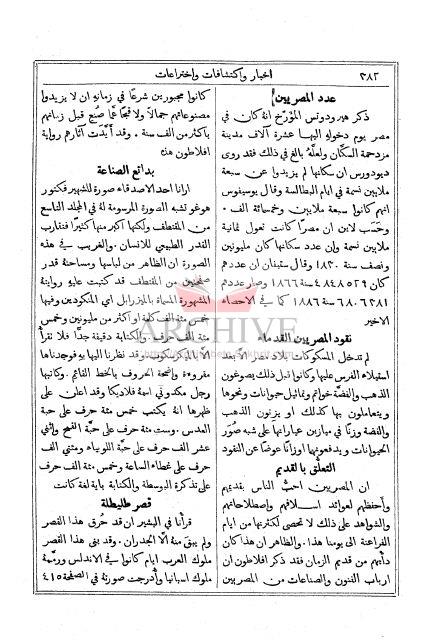 ٣٨٢
اخبار واكتشافات واختراعات
عدد المصريين
ذكر هيرودوتس المؤرخ انه كان في
مصر يوم دخوله اليها عشرة آلاف مدينة
مزدحمة السكان ولعلّه بالغ في ذلك فقد روى
ديودورس ان سكانها لم يزيدوا عن سبعة
ملايين نسمة في ايام البطالسة وقال يوسيفوس
انهم كانوا سبعة ملايين وخمسائة الف.
وحسب لاين ان مصر كانت تعول ثمانية
ملايين نسمة وإن عدد سكانها كان مليونين
ونصف سنة ١٨٣٠ وقال ستيفان ان عددهم
٤٨٤٨٥٢٩ سنة ١٨٦٦ وصار عددهم
٦٨٠٦٣٨١ سنة ١٨٨٦ كما في الاحصاء
الاخير
نقود المصريين القدماء
لم تدخل المسكوكات بلاد مصر الاّ بعد
استيلاء الفرس عليها وكانوا قبل ذلك يصوغون
الذهب والفضة خواتم وتماثيل حيوانات ونحوها
ويتعاملون بها كذلك او يزنون الذهب
والفضة وزنًا في ميازين عياراتها على شبه صُوَر
الحيوانات ويدفعونها اوزانًا عوضًا عن النقود
التعلق بالقديم
ان المصريين احبّ الناس بقديمهم
واحفظهم لعوائد اسلافهم واصطلاحاتهم
والشواهد على ذلك لا تحصى لكثرتها من ايام
الفراعنة الى يومنا هذا. والظاهر ان هذا كان
دأبهم من قديم الزمان فقد ذكر افلاطون ان
ارباب الفنون والصناعات من المصريين
كانوا مجبورين شرعًا في زمانه ان لا يزيدوا
مصنوعاتهم جمالاً ولا قبحًا عمّا صُنع قبل زمانهم
باكثر من الف سنة. وقد أيّدت آثارهم رواية
افلاطون هذه
بدائع الصناعة
ارانا احد الاصدقاء صورة للشهير فكتور
هوغو تشبه الصورة المرسومة له في المجلد التاسع
من المقتطف ولكنها اكبر منها كثيرًا فتقارب
القدر الطبيعي للانسان. والغريب في هذه
الصورة ان الظاهر من لباسها ومساحته قدر
صفحتين من المقتطف قد كتبت عليه روايته
المشهورة المسماة بالميزرابل اي المنكودين وفيها
خمس مئة الف كلمة او اكثر من مليونين وخمس
مئة الف حرف. والكتابة دقيقة جدًّا فلا تقرأ
الاّ بالمكرسكوب. وقد نظرنا اليها به فوجدناها
مقروءة واضحة الحروف بالخط القائم. وكاتبها
رجل مكدوني اسمه فلاديكا وقد اعلن على
ظهرها انه يكتب خمس مئة حرف على حبة
العدس. وست مئة حرف على حبة القمح واثني
عشر الف حرف على حبّة اللوبياء ومئتي الف
حرف على غطاء الساعة وخمس مئة الف حرف
على تذكرة البوسطة والكتابة باية لغة كانت
قصر طليطلة
قرأنا في البشير ان قد حُرق هذا القصر
ولم يبقَ منه الاّ الجدران. وقد بنى هذا القصر
ملوك العرب ايام كانوا في الاندلس ورمّمه
ملوك اسبانيا وأدرجت صورته في الصفحة ٤١٥
ARCHIVE